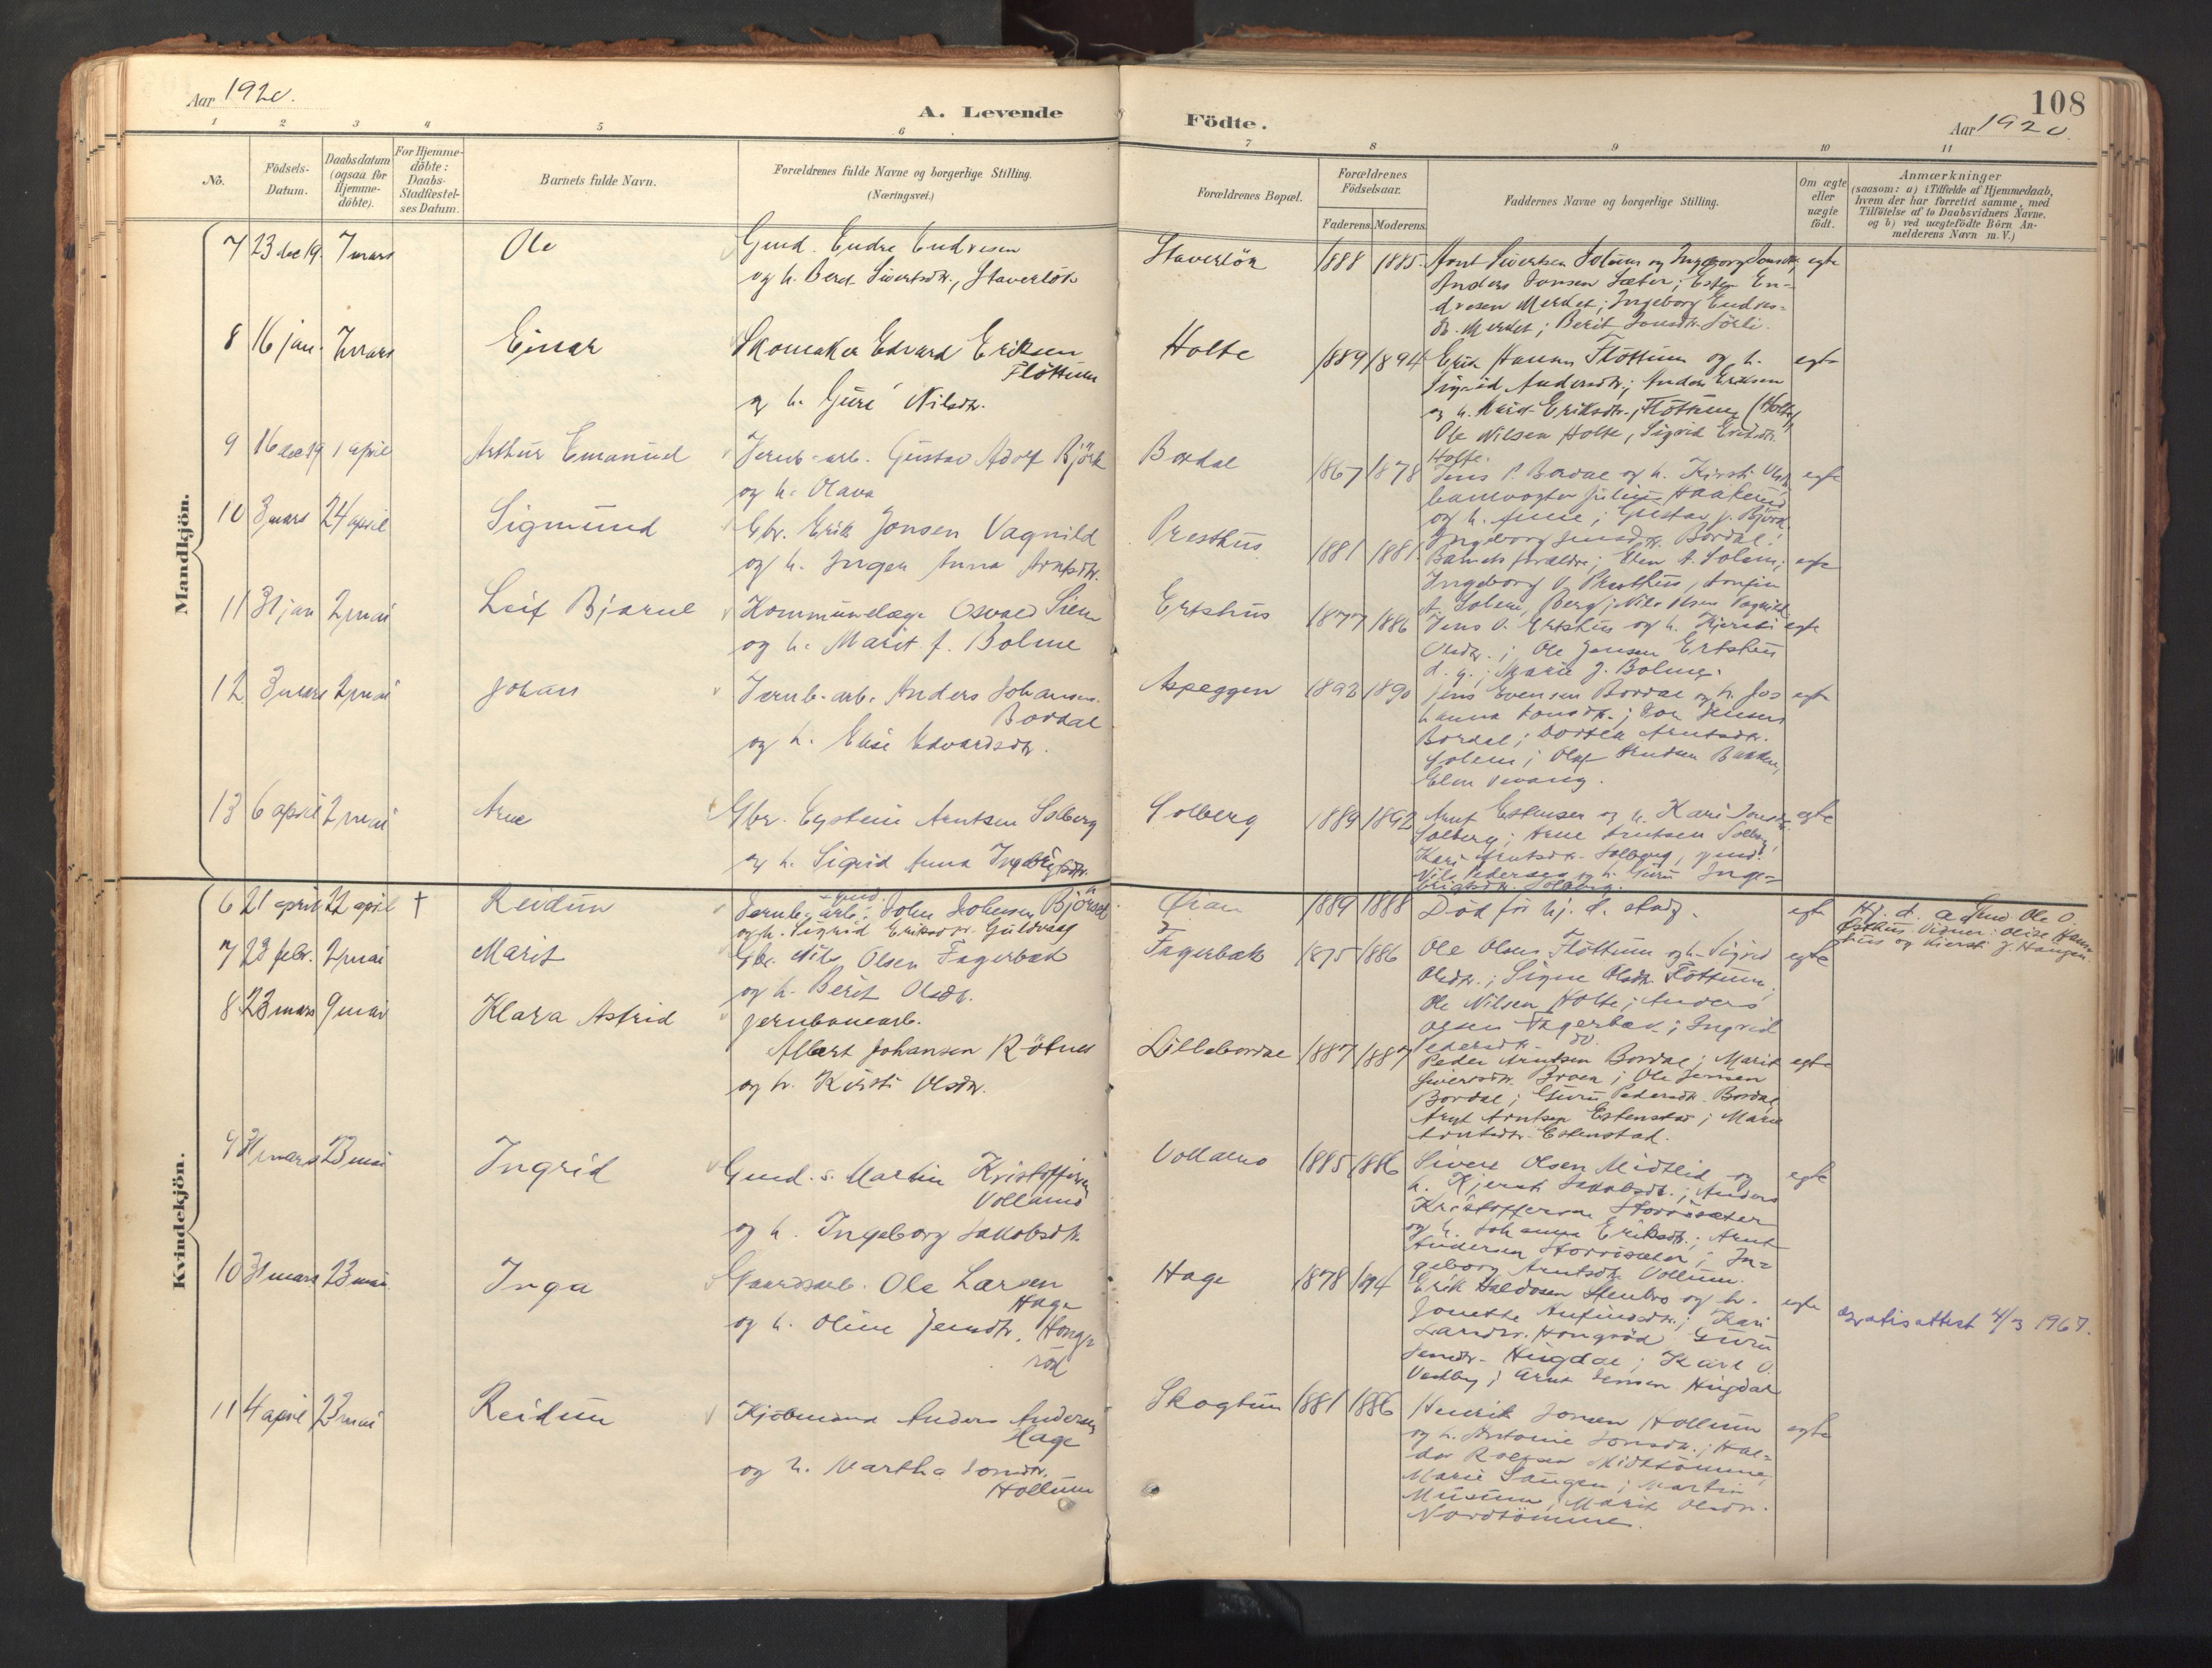 Aar 1920.
A. Levende
Födte.
108
Aar 1920.
1 2 3 4 5 6 7 8 9 10 11
No.
Födsels-
Datum.
Daabsdatum
(ogsaa for
Hjemme-
döbte).
For Hjemme-
döbte:
Daabs-
Stadfæstel-
ses Datum.
Barnets fulde Navn.
Forældrenes fulde Navne og borgerlige Stilling.
(Næringsvei.)
Forældrenes Bopæl.
Forældrenes
Födselsaar.
Faderens. Moderens.
Faddernes Navne og borgerlige Stilling.
Om ægte
eller
uægte
födt.
Anmærkninger
(saasom: a) i Tilfælde af Hjemmedaab,
hvem der har forrettet samme, med
Tilföielse af to Daabsvidners Navne.
og b) ved uægtefödte Börn An-
melderens Navn m. V.)
Mandkjön.
7 23 dec 19. 7 mars Ole Gmd. Endre Endresen
og h. Berit Sivertsdtr., Staverlök
Staverlök 1888 1885. Arnt Sivertsen Solum og Ingeborg Jonsdtr. egte
Anders Jonsen Sæter; Esten En-
dresen Merket; Ingeborg Endres-
dtr. Merket; Berit Jonsdtr. Sörli.
8 16 jan. 7 mars Einar Skomaker Edvard Eriksen
Flöttum
og h. Guri Nilsdtr.
Holte 1889 1894 Erik Hansen Flöttum og h. egte
Sigrid Andersdtr.; Anders Eriksen
og h. Eriksdtr., Flöttum (Holte)
Ole Nilsen Holte, Sigrid Eriksdtr.
Holte.
9 16 dec 19 1 april Arthur Emanuel Jernb-arb. Gustav Adolf Björk
og h. Olava
Bordal 1867 1878 Jens P. Bordal og h. Kirsti Olsdtr. egte
banevogter Julius Haakerud
og h. Anne; Gustav J. Björk
Ingeborg Jensdtr. Bordal.
10 3 mars 24 april Sigmund Gbr. Erik Jonsen Vagnild
og h. Inger Anna Arntsdtr.
Presthus 1881 1881. Barnets forældre; Sten A. Solem; egte
Ingeborg O. Presthus,
A. Solem, Berg; Nils Olsen Vagnild.
11 31 jan 2 mai Leif Bjarne Kommunelæge Osvald Siem
og h. Marit f. Bolme
Ertshus 1877 1886 Jens O. Ertshus og h. Kjersti egte
Olsdtr.; Ole Jensen Ertshus
d. y.; Marie J. Bolme.
12 3 mars 2 mai Johan Jernb-arb. Anders Johansen
Bordal
og h. Elise Edvardsdtr.
Aspeggen 1892 1890 Jens Evensen Bordal og h. Jo= egte
hanna Jonsdtr.; Jon Jensen
Bordal; Dortea Arntsdtr.
Solem; Olaf Knudsen Bakken,
Elen Vevang.
13 6 april 2 mai Arne Gbr. Eystein Arntsen Solberg
og h. Sigrid Anna Ingebrigtsdtr.
Solberg 1889 1892 Arnt Estensen og h. Kari Jonsdtr. egte
Solberg; Arne Arntsen Solberg,
Kari Arntsdtr. Solberg, gmd.
Nils Pedersen og h. Guru Inge-
brigtsdtr. Solberg.
Kvindekjön.
6 21 april 22 april † Reidun Jernb-arb. gmd. John Johnsen Björset
og h. Sigrid Eriksdtr. Guldvaag
Öian 1889 1888 Död för hj. d. stadf. egte Hj. d. af Gmd. Ole O.
Esthus. Vidner: Olise Hans-
hus og Kjersti J. Haugen.
7 28 febr. 2 mai Marit Gbr. Nils Olsen Fagerbæk
og h. Berit Olsdtr.
Fagerbæk 1875 1886 Ole Olsen Flöttum og h. Sigrid egte
Olsdtr.; Signe Olsdtr. Flöttum,
Ole Nilsen Holte; Anders
Olsen Fagerbæk; Ingrid
Pedersdtr. do.
8 23 mars 9 mai Klara Astrid Jernbanearb.
Albert Johansen Rötnes
og h. Kirsti Olsdtr.
Lillebordal 1887 1887 Peder Arntsen Bordal; Marit egte
Sivertsdtr. Broen; Ole Jensen
Bordal; Guru Pedersdtr. Bordal,
Arnt Arntsen Estenstad; Marie
Arntsdtr. Estenstad.
9 31 mars 23 mai Ingrid Gmd. s. Martin Kristoffersen
Vollamo
og h. Ingeborg Jakobsdtr.
Vollamo 1885 1886 Sivert Olsen Midtlid og egte
h. Kjersti Jakobsdtr.; Anders
Kristoffersen Storrösæter
og h. Johanna Eriksdtr.; Arnt
Andersen Storrösæter; In=
geborg Arntsdtr. Vollum.
10 31 mars 23 mai Inga Gaardsarb. Ole Larsen
Hage
og h. Oline Jensdtr. Hongs-
röd
Hage 1878 1894 Erik Haldosen Stenbro og h. egte gratisattest 4/3 1967.
Jonette Anfinsdtr.; Kari
Larsdtr. Hongröd Guru
Jensdtr. Hugdal; Karl O.
Vedby; Arnt Jensen Hugdal
11 4 april 23 mai Reidun Kjöbmand Anders Andersen
Hage
og h. Martha Jonsdtr.
Hollum
Skogtun 1881 1886 Henrik Jonsen Hollum egte
og h. Antonie Jonsdtr.; Hal-
dor Rolfsen Midttömme,
Marie Saugen; Martin
Musum, Marit Olsdtr.
Nordtömme.